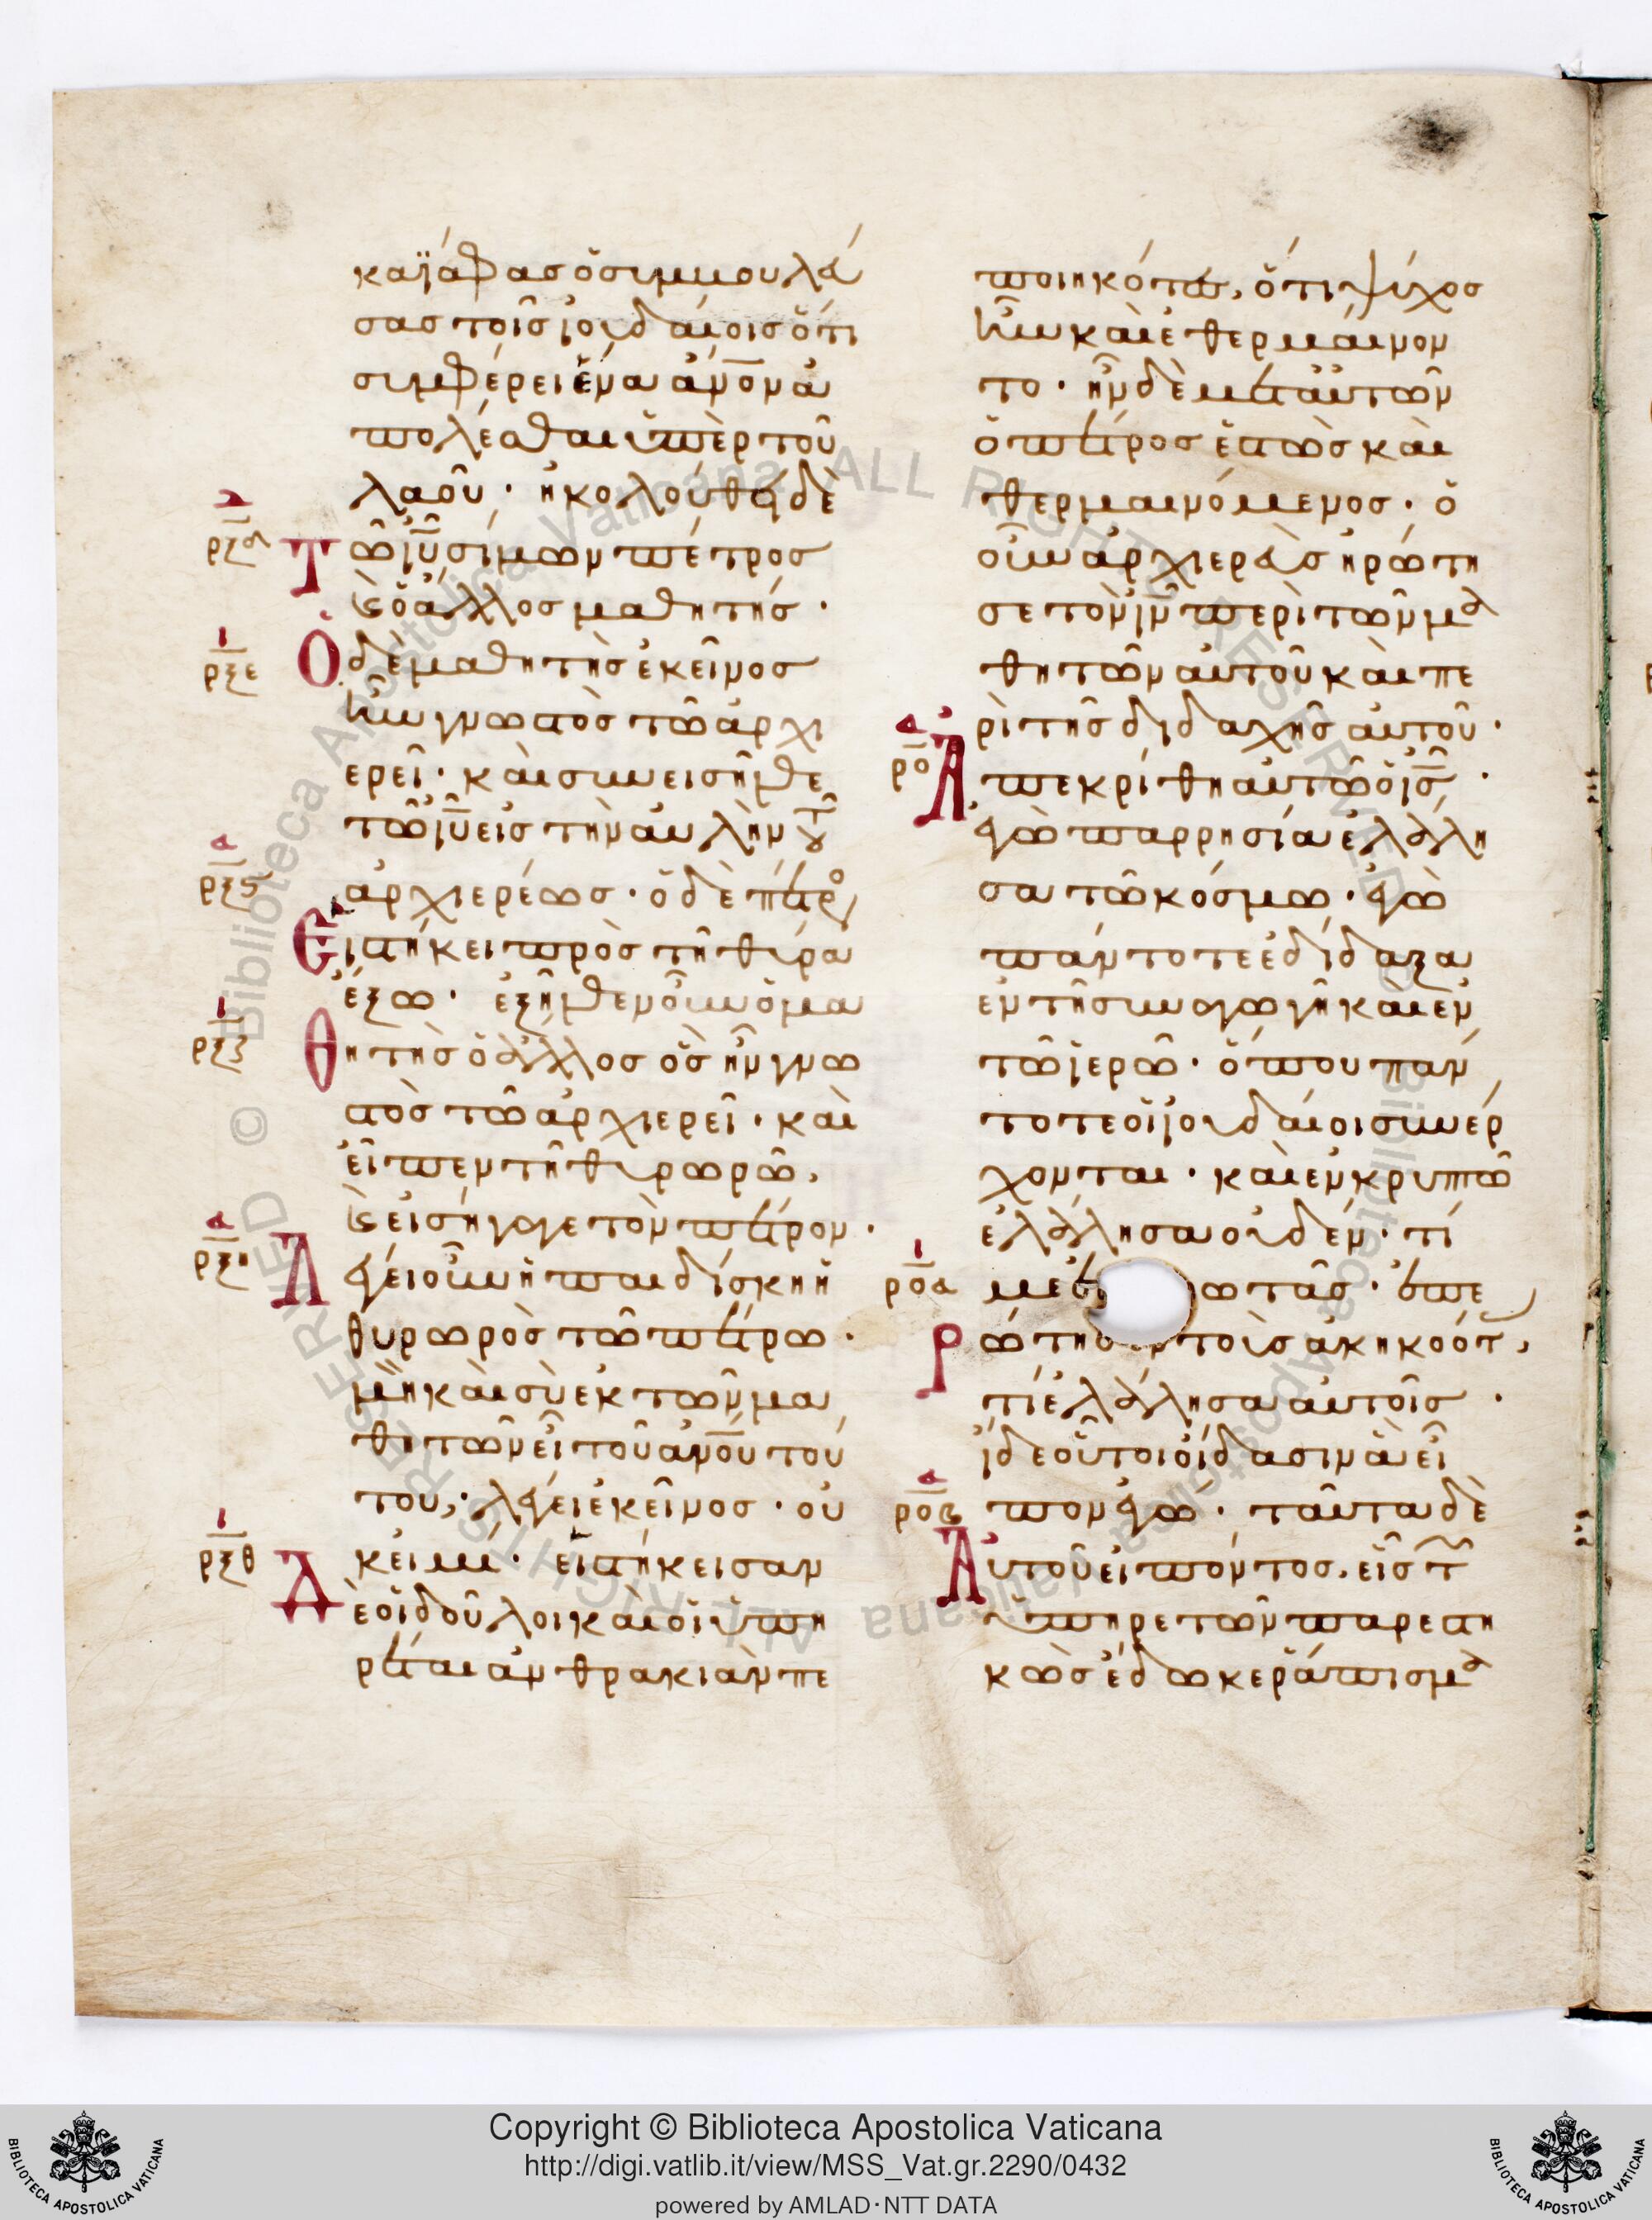 καϊάφας ὁ συμβουλεύ
σας τοῖς ἰουδαίοις ὅτι
συμφέρει ἕνα ἄν̅ο̅ν ἀ
πολέσθαι ὑπὲρ τοῦ
λαοῦ · ἠκολούθει δὲ
ρξδ Τῶ ἰ̅υ̅ σίμων πέτρος
καὶ ὁ ἄλλος μαθητής ·
ρξε Ὁ δὲ μαθητὴς ἐκεῖνος
ἦν γνωστὸς τῶ ἀρχι
ερεῖ · καὶ συνεισῆλθε
τῶ ἰ̅υ̅ εἰς τὴν αὐλὴν τοῦ
ρξϛ ἀρχιερέως · ὁ δὲ πέτρο
Εἱστήκει πρὸς τῆ θύρα
ἔξω · ἐξῆλθεν οὖν ὁ μα
ρξζ Θητὴς ὁ ἄλλος ὃς ἦν γνω
στὸς τῶ ἀρχιερεῖ · καὶ
εἶπεν τῆ θυρωρῶ,
καὶ εἰσήγαγε τὸν πέτρον ·
ρξη Λέγει οὖν ἡ παιδίσκη ἡ
θυρωρὸς τῶ πέτρω ·
μὴ καὶ σὺ ἐκ τῶν μα
θητῶν εἶ τοῦ ἀν̅ο̅υ τού
του, · λέγει ἐκεῖνος · οὐ
ρξθ κ εἰμι · εἱστήκεισαν
Δὲ οἱ δοῦλοι καὶ οἱ ὑπη
ρέται ἀνθρακιὰν πε
ποιηκότες, ὅτι ψύχος
ἦν καὶ ἐθερμαίνον
το · ἦν δὲ μετ αὐτῶν
ὁ πέτρος ἑστὼς καὶ
θερμαινόμενος · ὁ
οὖν ἀρχιερεὺς ἠρώτη
σε τὸν ἰ̅ν̅ περὶ τῶν μα
θητῶν αὐτοῦ καὶ πε
ρὶ τῆς διδαχῆς αὐτοῦ ·
ρο Ἀπεκρίθη αὐτῶ ὁ ἰ̅ς̅ ·
ἐγὼ παρρησία ἐλάλη
σα τῶ κόσμω · ἐγὼ
πάντοτε ἐδίδαξα
ἐν τῆ συναγωγῆ καὶ ἐν
τῶ ἱερῶ · ὅπου πάν
τοτε οἱ ἰουδαίοι συνέρ
χονται · καὶ ἐν κρυπτῶ
ἐλάλησα οὐδέν · τί
ροα με ἐ ωτᾶς · ἐπε
Ρώτησ τοὺς ἀκηκοότ,
τί ἐλάλησα αὐτοῖς ·
ἴδε οὗτοι οἴδασιν ἃ εἶ
ροβ πον ἐγώ · ταῦτα δὲ
Αὐτοῦ εἰπόντος. εἷς τῶν
ὑπηρετῶν παρεστη
κὼς ἔδωκε ράπισμα